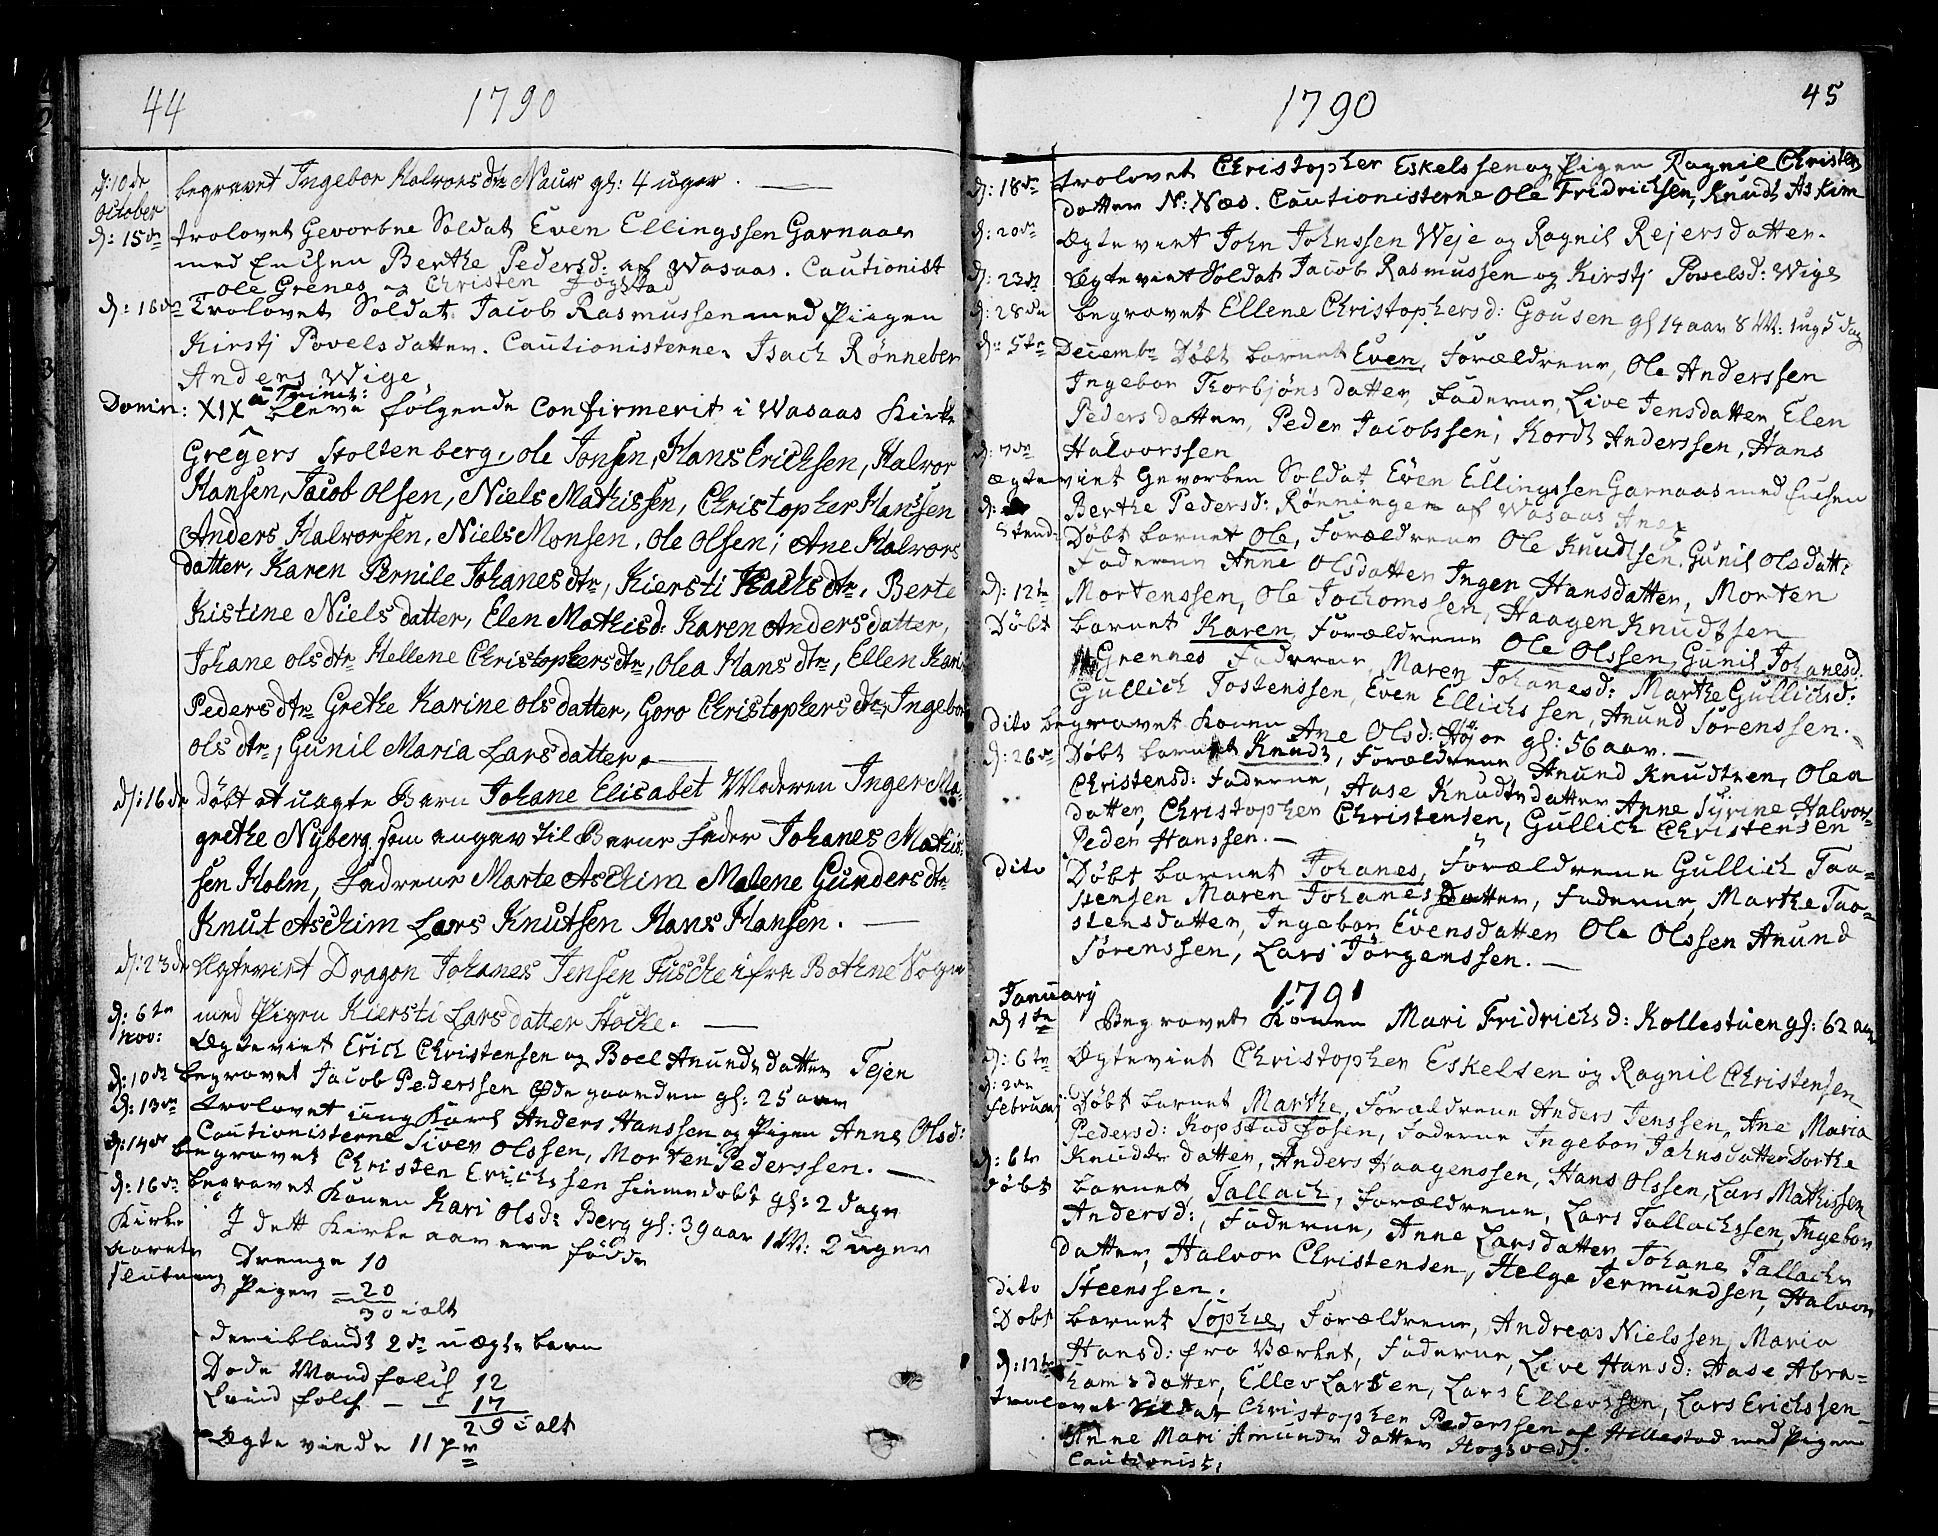 44
1790
d: 10de October begravet Ingebor Halvorsdtr Naur gl: 4 uger.
d: 15de trolovet Gevorbne Soldat Even Ellingssen Garnaas
med Enchen Berthe Pedersd: af Wasaas. Cautionist
ole Grenes og Christen Fogstad
d: 16de Trolovet Soldat Jacob Rasmussen med Piigen
Kirstj Povelsdatter. Cautionisterne Isach Rønneber
Anders Wige.
Domin: XIX a Trinit: bleve følgende Confirmerit i Wasaas Kirke
Gregers Stoltenberg, ole Jonsen, Hans Erichsen, Halvor
Hansen, Jacob Olsen, Niels Mathissen, Christopher Hanssen
Anders Halvorssen, Niels Monsen, Ole Olsen; Ane Halvors
datter, Karen Pernile Johanesdtr, Kiersti Isachsdtr, Berte
Kistine Nielsdatter, Elen Mathisd: Karen Andersdatter,
Johane olsdtr Hellene Christophersdtr, Olea Hansdtr, Ellen Kari
Pedersdtr Grethe Karine olsdatter, Goro Christophersdtr, Ingebor
olsdtr, Gunil Maria Larsdatter.
d: 16de døbt et uægte Barn Johane Elisabet Moderen Inger Ma-
grethe Nyberg som angav til Barne Fader Johanes Mathis:
sen Holm, Fadrene Marte Aschim Malene Gundersdtr
Knut Aschim Lars Knutsen Hans Hansen.
d: 23de Ægteviet Dragon Johanes Jensen Fische ifra Bothne Sogn
med Pigen Kiersti Larsdatter Stocke.
d: 6te nov: Ægteviet Erich Christensen og Boel Anundsdatter Tejen
d: 10de begravet Jacob Pederssen Ødegaarden gl: 25 aar
d: 13de trolovet ung Karl Anders Hanssen og Pigen Anne Olsd:
Cautionisterne Siver Olssen, Morten Pederssen.
d: 14de begravet Christen Erichssen hiemedøbt gl: 2 dage
d: 16de begravet Konen Kari Olsd: Berg gl: 39 aar 1 M: 2 uger
Kirke Aarets slutning I dett Kirke aar ere fødde
Drenge 10
Piger = 20
30 i alt
deriblandt 2de uægte børn
Døde Mandfolch 12
Qvindfolch - - 17
29 i alt
Ægte viede 11 par
1790
45
d: 18de trolovet Christopher Eskelssen og Pigen Ragnil Christens
datter N: Næs. Cautionisterne Ole Fridrichsen, Knudt Askim
d: 20de Ægteviet John Johnssen Weje og Ragnil Rejersdatter.
d: 23de Ægteviet Soldat Jacob Rasmussen og Kirstj Povelsd: Wige
d: 28de begravet Ellene Christophersd: Gousen gl 14 aar 8 M: 1 ug 5 dag
d: 5te Decembr Døbt barnet Even, Forældrene, Ole Anderssen
Ingebor Thorbjønsdatter, Faderne, Live Jensdatter Elen
Pedersdatter, Peder Jacobssen, Kordt Anderssen, Hans
Halvorssen
d: 7de ægteviet Gevorben Soldat Even Ellingssen Garnaas med Enchen
Berthe Pedersd: Rønningen af Wasaas Anex
d: Døbt barnet Ole, Forældrene Ole Knudtsen, Gunil Olsdatt:
Faderne Anne Olsdatter Inger Hansdatter, Morten
Mortenssen, Ole Jochomssen, Haagen Knudtsen
d: 12te Døbt barnet Karen, Forældrene Ole Olssen, Gunil Johanesd:
Grennes Faderne, Maren Johanesd: Marthe Gullichsd:
Gullich Tostenssen, Even Ellichssen, Anund Sørenssen.
dito begravet konen Ane Olsd: Højor gl: 56 aar.
d: 26de Døbt barnet Knudt, Forældrene Anund Knudtsen, Olea
Christensd: Faderne, Aase Knudtsdatter Anne Syrine Halvors-
datter, Christopher Christensen, Gullich Christensen
Peder Hanssen.
dito Døbt barnet Johanes, Forældrene Gullich Taa-
stensen Maren Johanesdatter, Faderne, Marthe Taa-
stensdatter, Ingebor Evensdatter Ole Olssen Anund
Sørenssen, Lars Jørgenssen.
1791
January
d 1te Begravet Konen Mari Fridrichsd: Kollestuen gl: 62 aar
d: 6te Ægteviet Christopher Eskelsen og Ragnil Christensen
d: 2den februarj Døbt barnet Marthe, Forældrene Anders Jenssen, Ane Maria
Pedersd: Kopstad Josen, Faderne Ingebor Jahnsdatter Dorthe
Knudtsdatter, Anders Haagenssen, Hans Olssen, Lars Mathissen
d: 6te døbt barnet Tallach, Forældrene, Lars Tallachssen, Ingebor
Andersd:, Faderne, Anne Larsdatter, Johane Tallachs
datter, Halvor Christensen, Helge Termundsen, Halvor
Steenssen.
dito Døbt barnet Sophie, Forældrene, Andreas Nielssen, Maria
Hansd: fra Værket, Faderne, Live Hansd: Aase Abra-
hamsdatter, Ellev Larssen, Lars Ellevssen, Lars Erichssen
d: 12te trolovet Soldat Christopher Pederssen af Hillestad med Pigen
Anne Mari Amundsdatter Hogsvedt.
Cautionist,